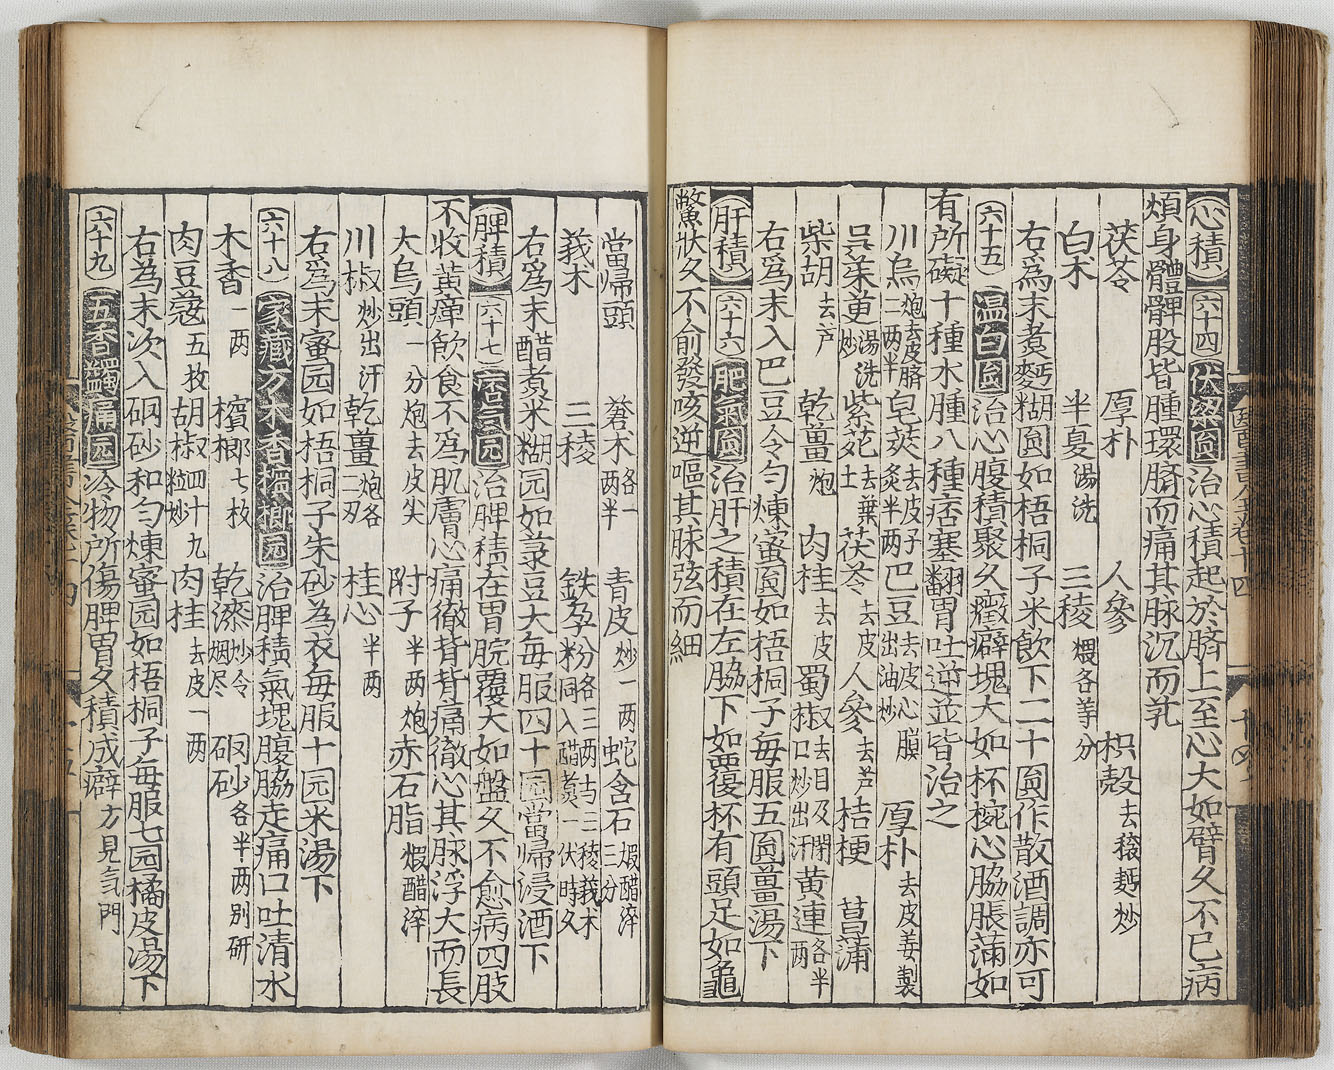 心積 六十四 伏梁圎 治心積起於臍上至心大如臂久不已病
煩身體髀股皆腫環臍而痛其脉沉而芤
茯苓 厚朴 人參 枳殼去穣麪炒
白朮 半夏湯洗 三稜煨各等分
右爲末煮麪糊圎如梧桐子米飲下二十圎作散酒調亦可
六十五 温白圎 治心腹積聚久癥癖塊大如杯椀心脇脹滿如
有所礙十種水腫八種痞塞翻胃吐逆並皆治之
川烏炮去皮臍二两半 皂莢去皮子炙半两 巴豆去皮心膜出油炒 厚朴去皮姜製
呉茱萸湯洗炒 紫菀去葉土 茯苓去皮 人參去芦 桔梗 菖蒲
柴胡去芦 乾薑炮 肉桂去皮 蜀椒去目及閉口炒出汗 黄連各半两
右爲末入巴豆令勻煉蜜圎如梧桐子每服五圎薑湯下
肝積 六十六 肥氣圎 治肝之積在左脇下如覆杯有頭足如龜
鱉狀久不愈發咳逆嘔其脉弦而細
當歸頭 蒼朮各一两半 青皮炒一两 蛇含石煆醋淬三分
莪朮 三稜 鉄孕粉各三两与三稜莪朮同入醋煑一伏時久
右爲末醋煮米糊园如菉豆大每服四十园當歸浸酒下
脾積 六十七 痞气园 治脾積在胃脘覆大如盤久不愈病四肢
不收黄疸飲食不爲肌膚心痛徹背背痛徹心其脉浮大而長
大烏頭一分炮去皮尖 附子半两炮 赤石脂煆醋淬
川椒炒出汗 乾薑炮各二刄 桂心半两
右爲末蜜园如梧桐子朱砂为衣每服十园米湯下
六十八 家藏方木香檳榔园 治脾積氣塊腹脇走痛口吐清水
木香一两 檳榔七枚 乾漆炒令烟尽 硇砂各半两别研
肉豆蔻五枚 胡椒四十九粒炒 肉桂去皮一两
右為末次入硇砂和勻煉蜜园如梧桐子每服七园橘皮湯下
六十九 五香蠲痛园 冷物所傷脾胃久積成癖方見气門